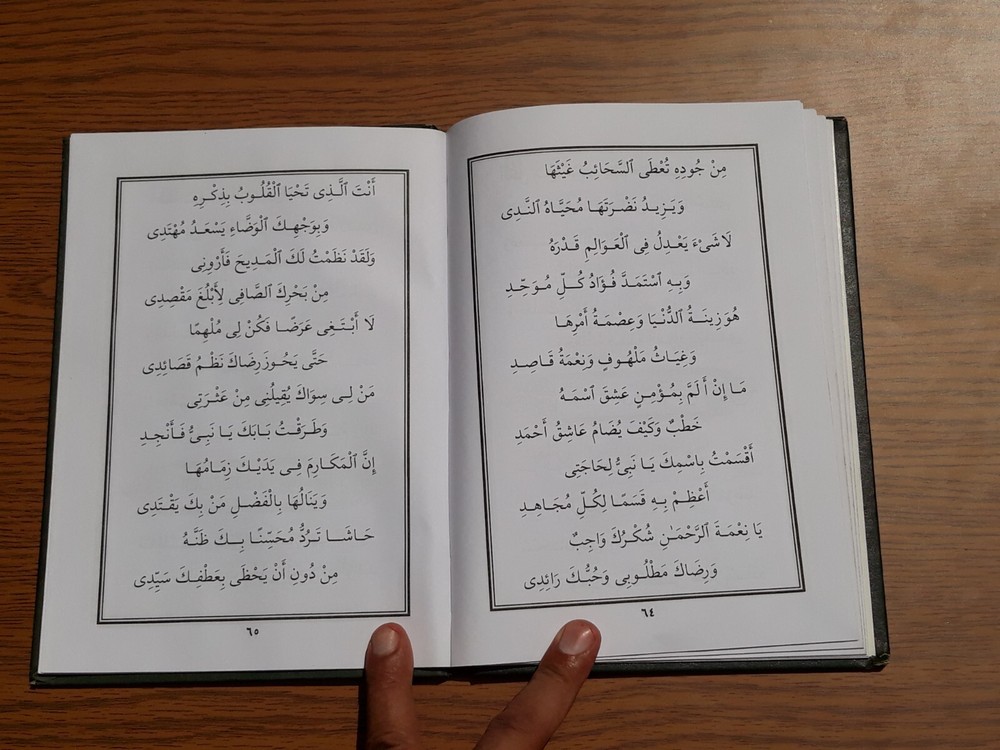 مِنْ جُودِهِ تُعْطَى ٱلسَّحَائِبُ غَيْثَهَا
وَيَزِيدُ نَضْرَتَهَا مُحَيَّاهُ ٱلنَّدِى
لَاشَىْءَ يَعْدِلُ فِى ٱلْعَوَالِمِ قَدْرَهُ
وَبِهِ ٱسْتَمَدَّ فُؤَادُ كُلِّ مُوَحِّدِ
هُوَ زِينَةُ ٱلدُّنْيَا وَعِصْمَةُ أَمْرِهَا
وَغِيَاثُ مَلْهُوفٍ وَنِعْمَةُ قَاصِدِ
مَا إِنْ أَلَمَّ بِمُؤْمِنٍ عَشِقَ ٱسْمَهُ
خَطْبٌ وَكَيْفَ يُضَامُ عَاشِقُ أَحْمَدِ
أَقْسَمْتُ بِاسْمِكَ يَا نَبِىُّ لِحَاجَتِى
أَعْظِمْ بِهِ قَسَمًا لِكُلِّ مُجَاهِدِ
يَا نِعْمَةَ ٱلرَّحْمَـٰنِ شُكْرُكَ وَاجِبٌ
وَرِضَاكَ مَطْلُوبِى وَحُبُّكَ رَائِدِى
٦٤
أَنْتَ ٱلَّذِى تَحْيَا ٱلْقُلُوبُ بِذِكْرِهِ
وَبِوَجْهِكَ ٱلْوَضَّاءِ يَسْعَدُ مُهْتَدِى
وَلَقَدْ نَظَمْتُ لَكَ ٱلْمَدِيحَ فَأَرْوِنِى
مِنْ بَحْرِكَ ٱلصَّافِى لِأَبْلُغَ مَقْصِدِى
لَا أَبْتَغِى عَرَضًا فَكُنْ لِى مُلْهِمًا
حَتَّى يَحُوزَ رِضَاكَ نَظْمُ قَصَائِدِى
مَنْ لِى سِوَاكَ يُقِيلُنِى مِنْ عَثْرَتِى
وَطَرَقْتُ بَابَكَ يَا نَبِىُّ فَأَنْجِدِ
إِنَّ ٱلْمَكَارِمَ فِى يَدَيْكَ زِمَامُهَا
وَيَنَالُهَا بِالْفَضْلِ مَنْ بِكَ يَقْتَدِى
حَاشَا تَرُدُّ مُحَسِّنًا بِكَ ظَنَّهُ
مِنْ دُونِ أَنْ يَحْظَى بِعَطْفِكَ سَيِّدِى
٦٥